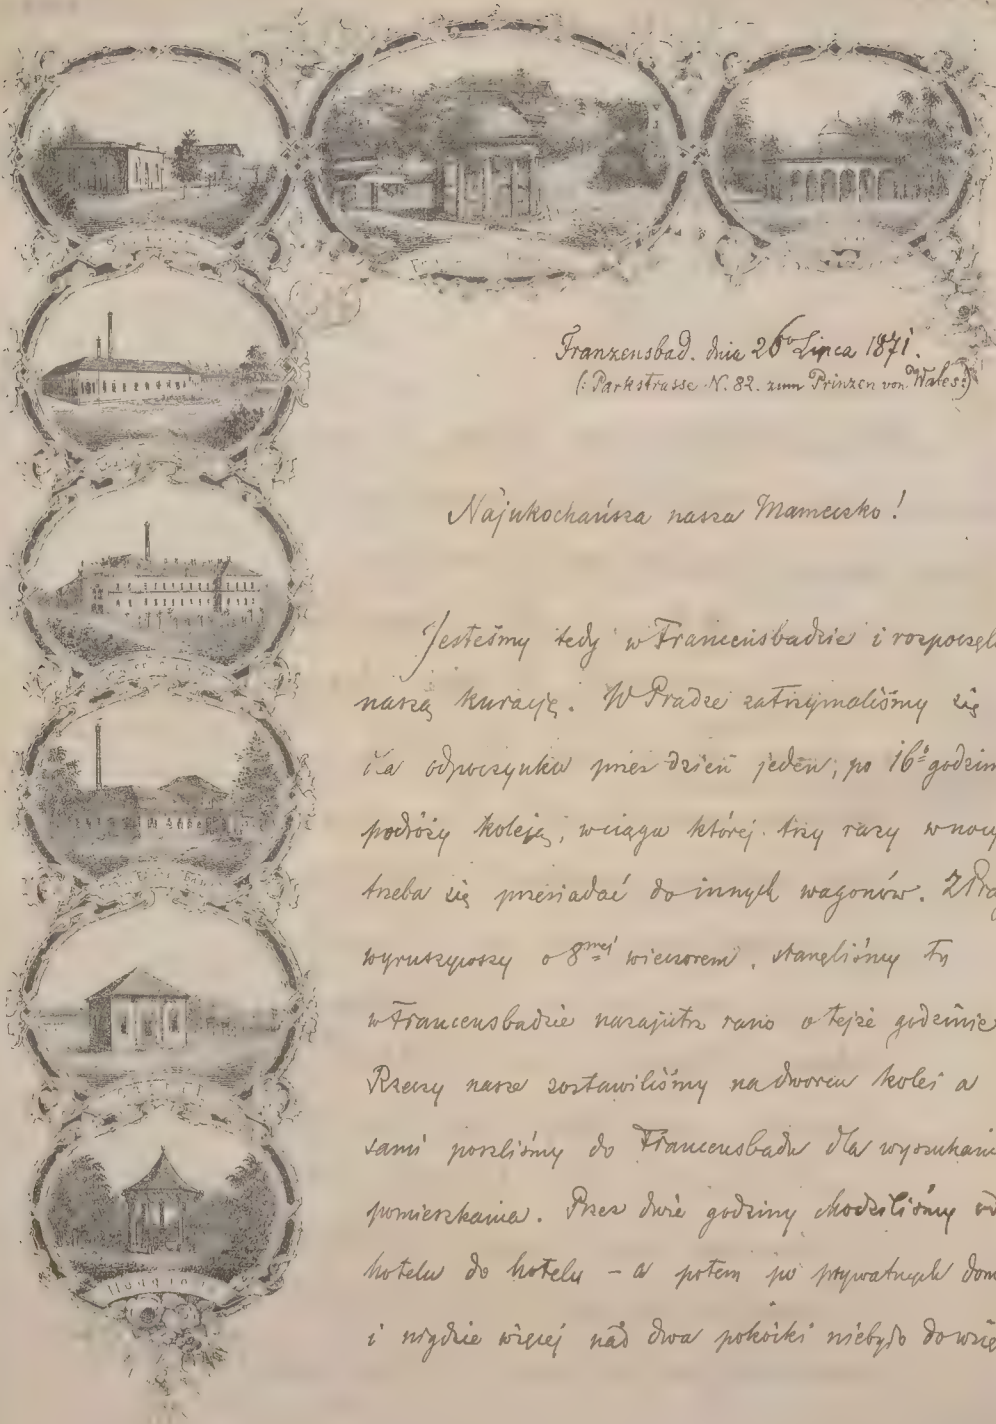 Franzensbad. dnia 26go Lipca 1871.
(: Parkstrasse N. 82. zum Prinzen von Wales:)
Najukochańsza nasza Mameczko!
Jesteśmy tedy w Francensbadzie i rozpoczęli
naszą kuracyę. W Pradze zatrzymaliśmy się
dla odpoczynku przez dzień jeden, po 16o godzin
podróży koleją, wciągu której trzy razy wnocy
trzeba się przesiadać do innych wagonów. Z Prag
wyruszywszy o 8mej wieczorem, stanęliśmy tu
w Francensbadzie nazajutrz rano o tejże godzinie
Rzeczy nasze zostawiliśmy na dworcu kolei a
sami poszliśmy do Francensbadu dla wyszukani
pomieszkania. Przez dwie godziny chodziliśmy od
hotelu do hotelu – a potem po prywatnych dom
i nigdzie więcej nad dwa pokoiki niebyło do wzię